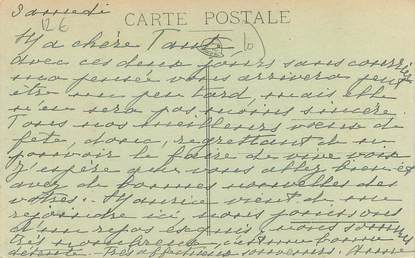 Samedi
126
CARTE POSTALE
Ma chère Tante
avec ces deux jours sans courrier
ma pensée vous arrivera peut
être un peu tard, mais elle
n'en sera pas moins sincère.
Tous nos meilleurs vœux de
fête, donc, regrettant de ne
pouvoir le faire de vive voix
J'espère que vous allez bien et
avez de bonnes nouvelles des
vôtres. Maurice vient de me
rejoindre ici, nous jouissons
d'un repos exquis, nous sommes
très nombreux, c'est une bonne
détente. Très affectueux souvenirs.